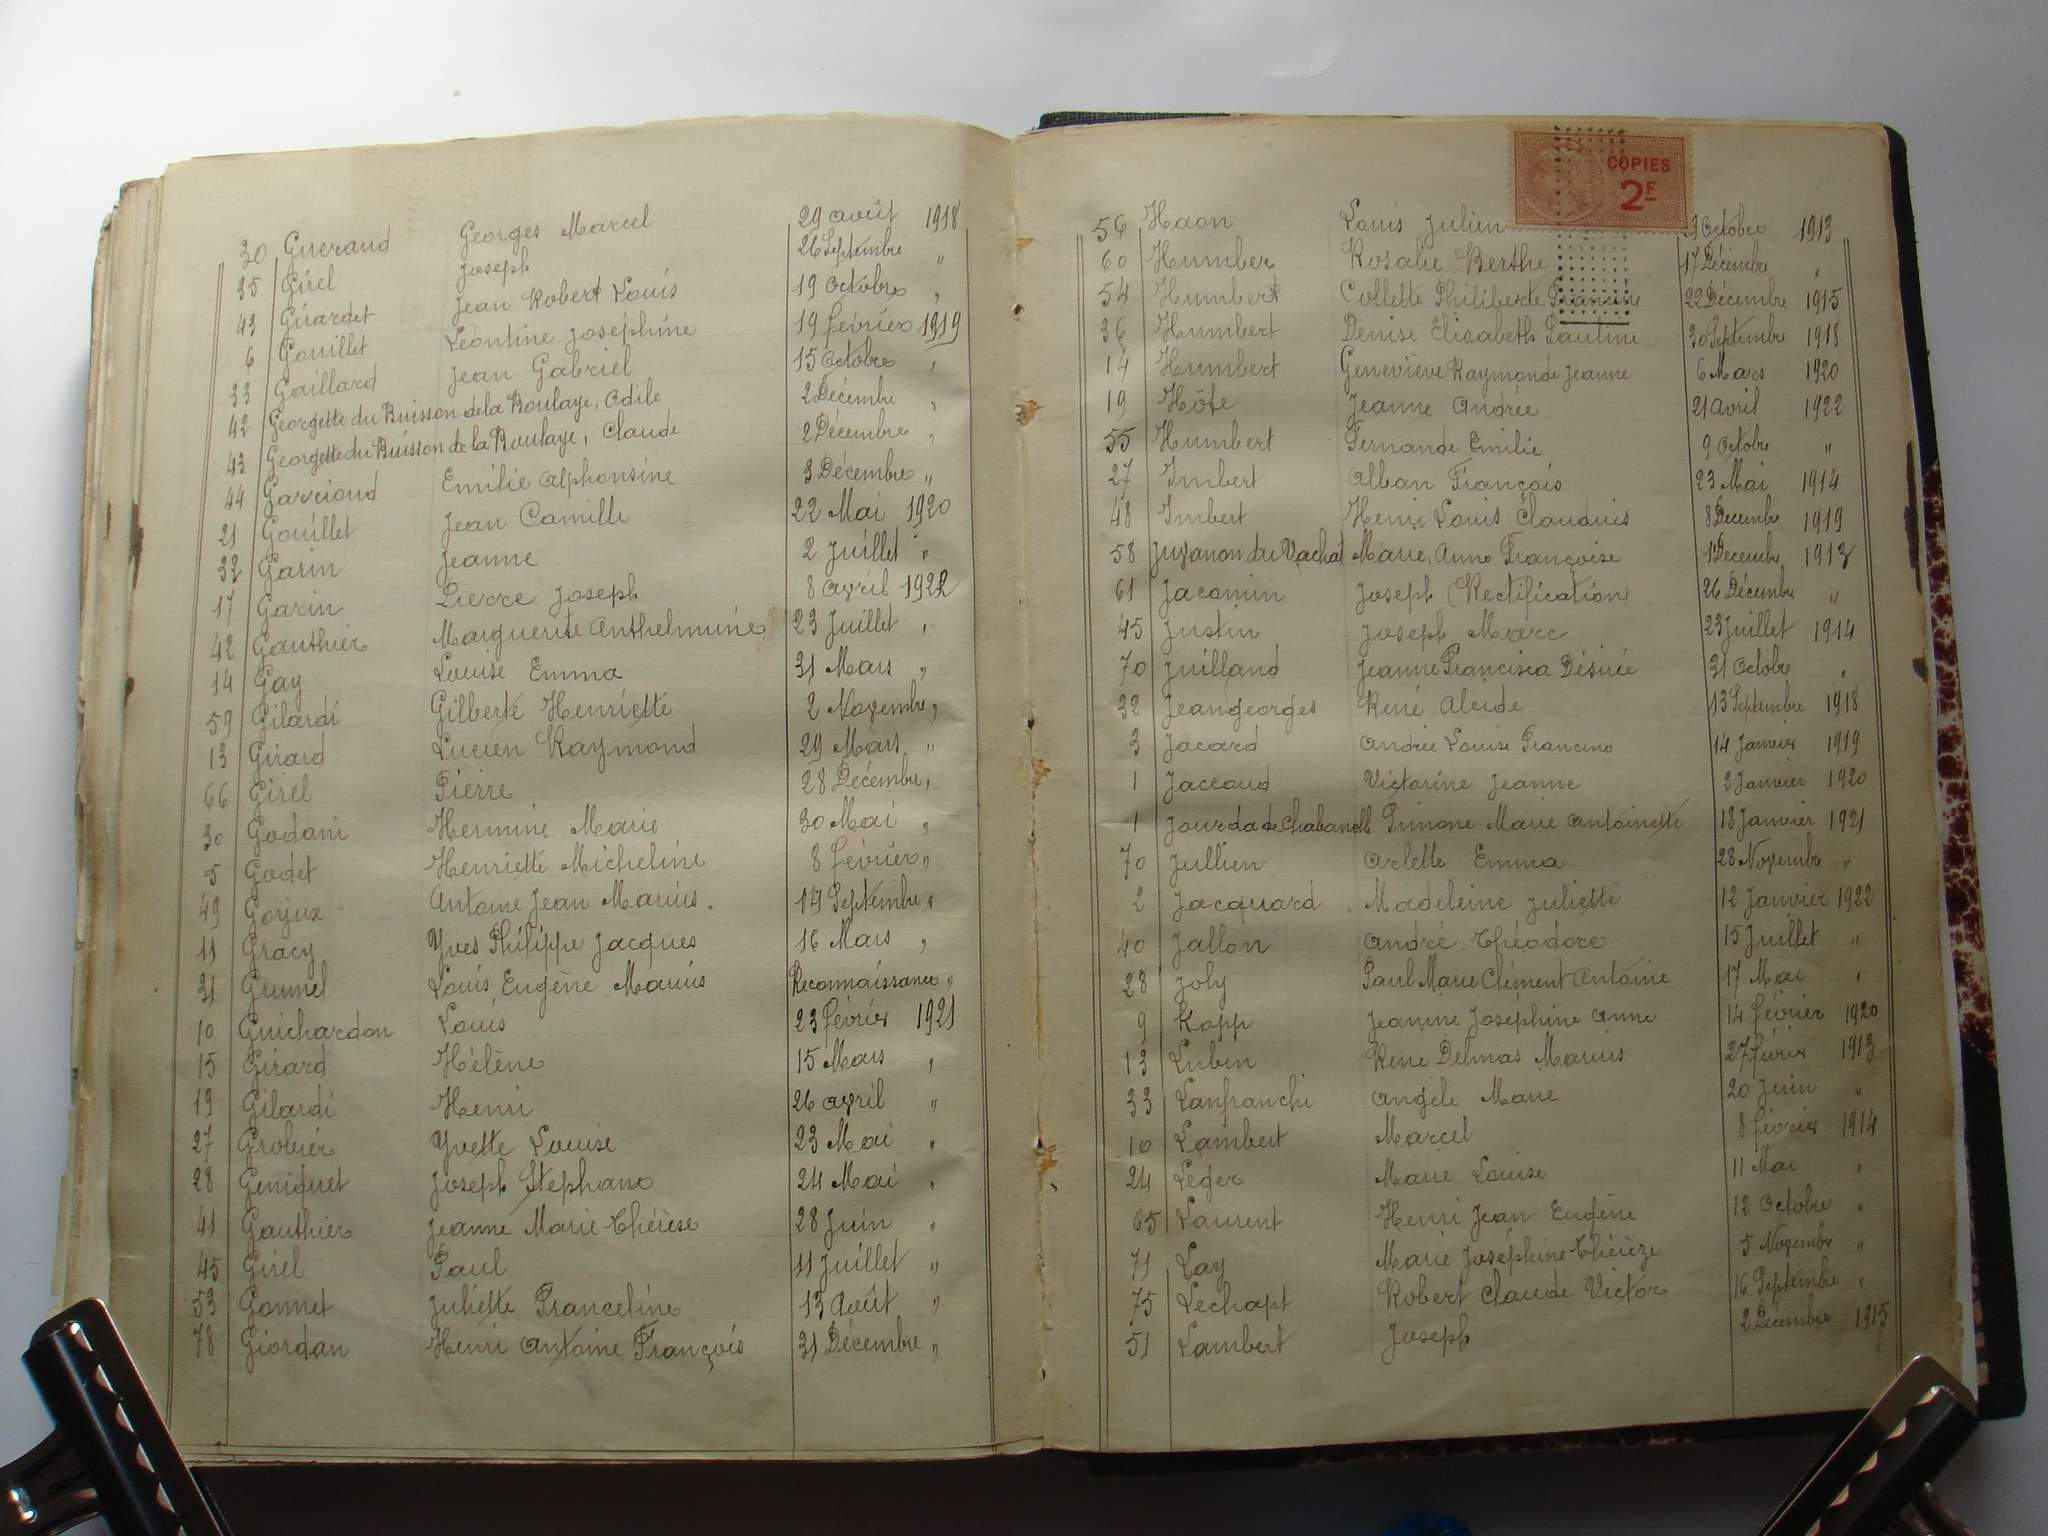 30 Gueraud Georges Marcel 29 août 1918
35 Girel Joseph 26 Septembre "
43 Girardet Jean Robert Louis 19 Octobre "
6 Gouillet Léontine Joséphine 19 février 1919
33 Gaillard Jean Gabriel 15 Octobre "
42 Georgette du Buisson de la Boulaye, Odile 2 Décembre "
43 Georgette du Buisson de la Boulaye, Claude 2 Décembre "
44 Garrioud Emilie Alphonsine 3 Décembre "
21 Gouillet Jean Camille 22 Mai 1920
32 Garin Jeanne 2 Juillet "
17 Garin Pierre Joseph 8 avril 1922
42 Gauthier Marguerite Anthelmine 23 Juillet "
14 Gay Louise Emma 31 Mars "
59 Gilardi Gilberte Henriette 2 Novembre "
13 Girard Lucien Raymond 29 Mars "
66 Girel Pierre 28 Décembre "
30 Godani Hermine Marie 30 Mai "
5 Godet Henriette Micheline 8 février "
49 Gorjux Antoine Jean Marius. Septembre "
11 Gracy Yves Philippe Jacques 16 Mars "
31 Grumel Louis Eugène Marius Reconnaissance "
10 Guichardon Louis 23 février 1921
15 Girard Hélène 15 Mars "
19 Gilardi Henri 26 avril "
27 Grobier Yvette Louise 23 Mai "
28 Geniquet Joseph Stephane 24 Mai "
41 Gauthier Jeanne Marie Thérèse 28 Juin "
45 Girel Paul 11 Juillet "
53 Gonnet Juliette Franceline 13 Août "
78 Giordan Henri Antoine François 31 Décembre "
COPIES
2F
56 Haon Louis Julien Octobre 1913
60 Humber Rosalie Berthe 17 Décembre "
54 Humbert Collette Philiberte Francine 22 Décembre 1915
36 Humbert Denise Elisabeth Pauline 30 Septembre 1918
14 Humbert Geneviève Raymonde Jeanne 6 Mars 1920
19 Hôte Jeanne Andrée 21 Avril 1922
55 Humbert Fernande Emilie 9 Octobre "
27 Imbert Alban François 23 Mai 1914
48 Imbert Henri Louis Claudius 8 Decembre 1919
58 Juvanon du Vachat Marie, Anne Françoise 1 Decembre 1913
61 Jacomin Joseph (Rectification) 26 Décembre "
45 Justin Joseph Marc 23 Juillet 1914
70 Juilland Jeanne Francisca Désirée 31 Octobre "
32 Jeangeorges René Alcide 13 Septembre 1918
3 Jacard Andrée Louise Francine 14 Janvier 1919
1 Jaccoud Victorine Jeanne 2 Janvier 1920
1 Jourda de Simone Marie Antoinette 18 Janvier 1921
70 Jullien Arlette Emma 28 Novembre "
2 Jacquard Madeleine Juliette 12 Janvier 1922
40 Jallon André Théodore 15 Juillet "
28 Joly Paul Marie Clément Antoine 17 Mai "
9 Kopp Jeanine Joséphine Anne 14 février 1920
13 Lubin Rene Delmas Marius 27 février 1913
33 Lanfranchi Angèle Marie 20 Juin "
10 Lambert Marcel 8 février 1914
24 Leger Marie Louise 11 Mai "
65 Laurent Henri Jean Eugène 12 Octobre "
71 Lay Marie Joséphine Thérèze 5 Novembre "
75 Lechapt Robert Claude Victor 16 Septembre "
51 Lambert Joseph 2 Décembre 1915